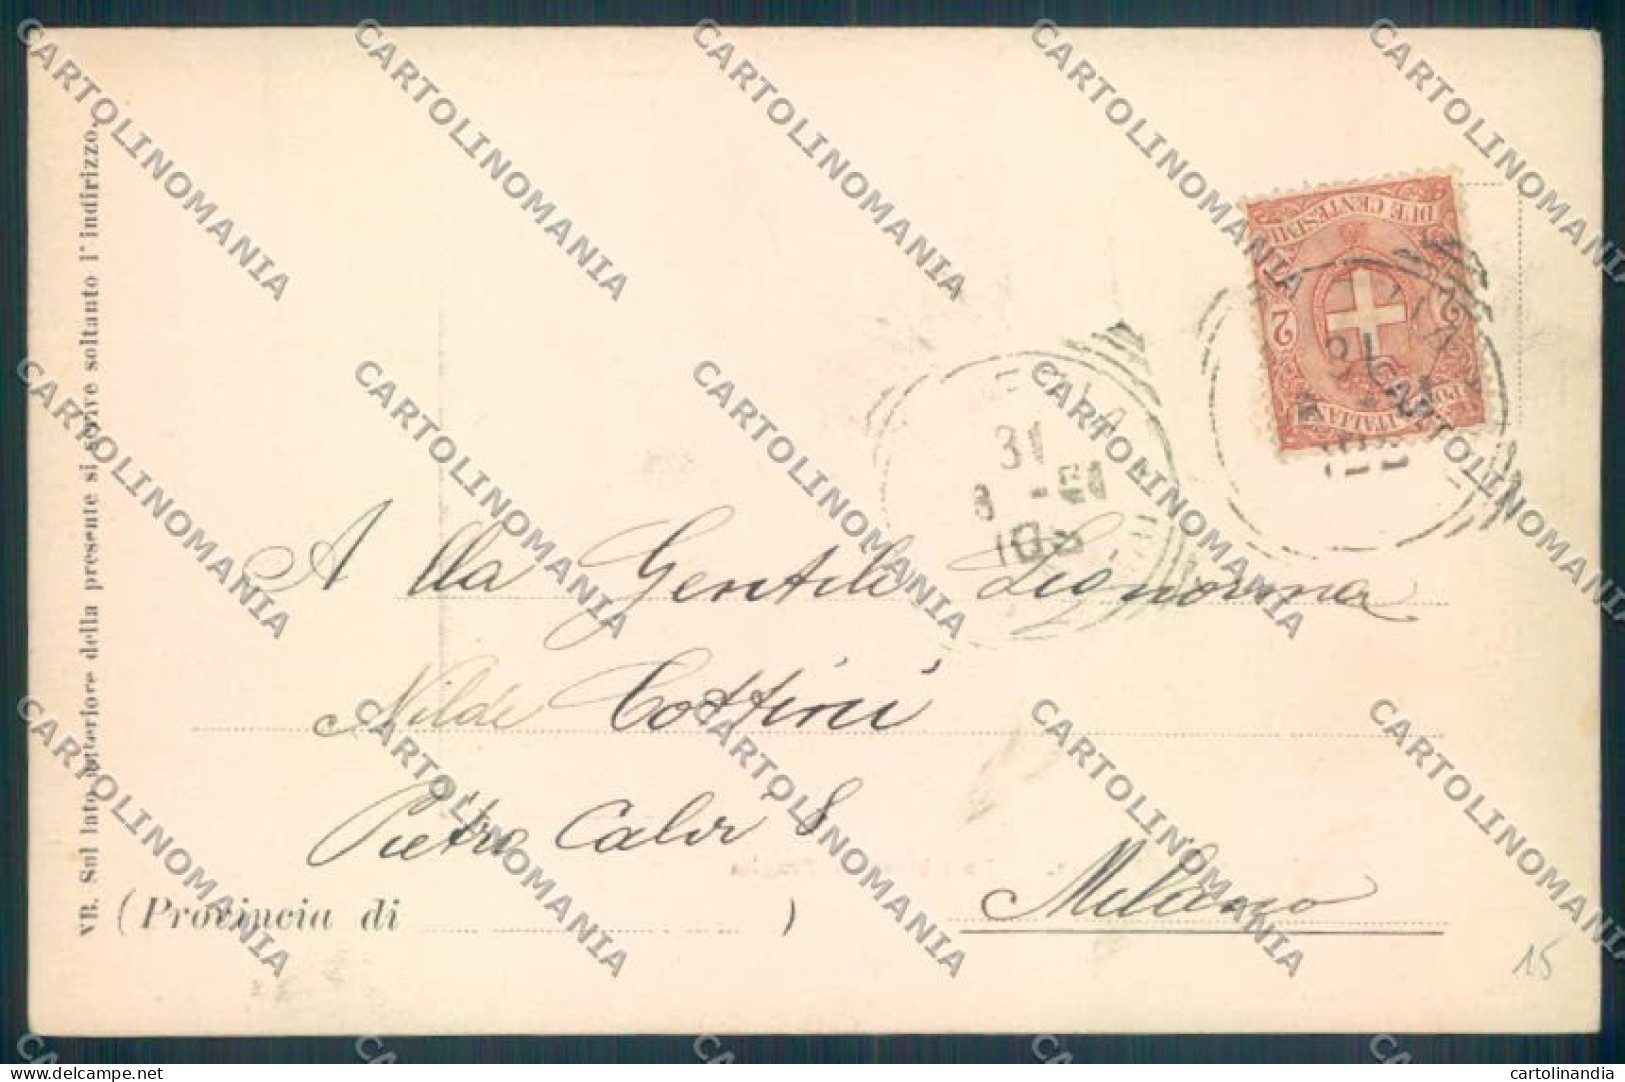 VB. Sul lato anteriore della presente si scrive soltanto l'indirizzo.
DUE CENTESIMI
2 2
POSTE ITALIANE
31
8
A lla Gentile Signorina
Nilde Cottini
Pietro Calvi 8
(Provincia di )
Milano
15
CARTOLINOMANIA
cartolinandia